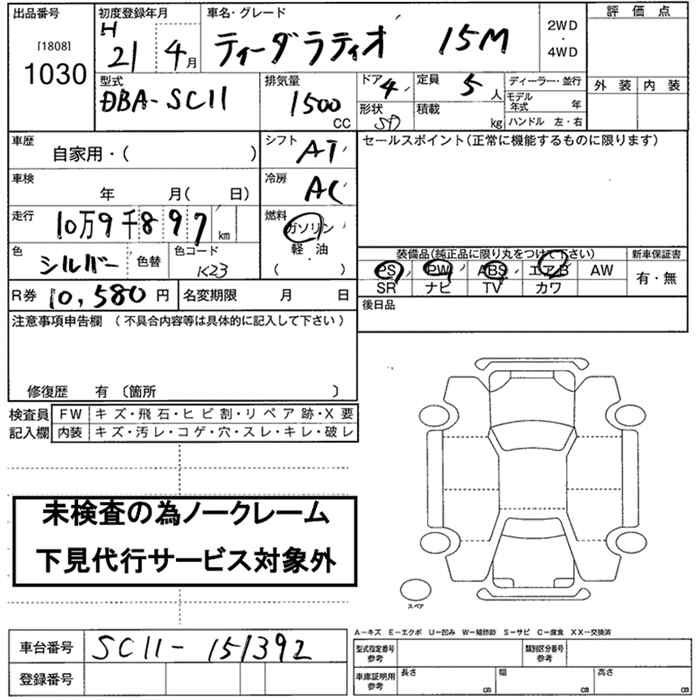 出品番号 初度登録年月 車名・グレード 評価点
[1808] H 21 4月 ティーダラティオ 15M 2WD・4WD
1030
型式 排気量 ドア 4 定員 5人 ディーラー・並行 外装 内装
DBA-SC11 1500 CC 形状 SD 積載 kg モデル年式 年
ハンドル 左・右
車歴 自家用・( ) シフト AT セールスポイント(正常に機能するものに限ります)
車検 年 月( 日) 冷房 AC
走行 10万9千897 km 燃料 ガソリン・軽油 ( )
色 シルバー 色替 色コード K23
装備品(純正品に限り丸をつけて下さい) 新車保証書
PS PW ABS エアB AW 有・無
SR ナビ TV カワ
R券 10,580円 名変期限 月 日 後日品
注意事項申告欄 (不具合内容等は具体的に記入して下さい)
修復歴 有 〔箇所 〕
検査員記入欄 FW キズ・飛石・ヒビ割・リペア跡・X要
内装 キズ・汚レ・コゲ・穴・スレ・キレ・破レ
未検査の為ノークレーム
下見代行サービス対象外
スペア
A-キズ E-エクボ U-凹み W-補修跡 S-サビ C-腐食 XX-交換済
車台番号 SC11-151392 型式指定番号 参考 類別区分番号 参考
登録番号 車庫証明用 参考 長さ cm 幅 cm 高さ cm